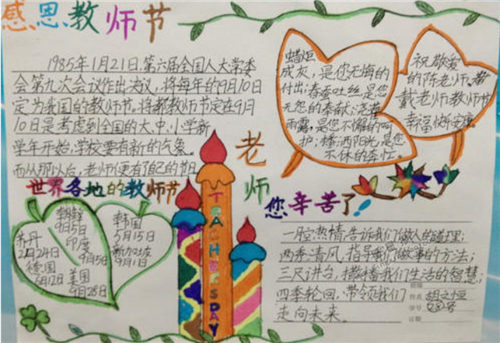 感恩教师节
1985年1月21日,第六届全国人大常委
会第九次会议作出决议,将每年的9月10日
定为我国的教师节,将教师节定在9月
10日是考虑到全国的大、中、小学新
学年开始,学校要有新的气象。
而从那以后,老师便有了自己的节日
蜡炬
成灰,是您无悔的
付出;春蚕吐丝,是您
无怨的奉献;浇灌
雨露,是您不倦的呵
护;播洒阳光,是您
不休的奔忙
祝敬爱
的陈老师、
戴老师教师节
幸福快乐
世界各地的教师节
苏丹
2月24日
德国
6月12日
朝鲜
9月5日
印度
9月5日
美国
9月28日
韩国
5月15日
新加坡
9月1日
TEACHER'SDAY
老师
您辛苦了!
一腔热情,告诉我们做人的道理;
两季清风,指导我们做事的方法;
三尺讲台,播撒我们生活的智慧;
四季轮回,带领我们
走向未来。
班级
姓名
学号